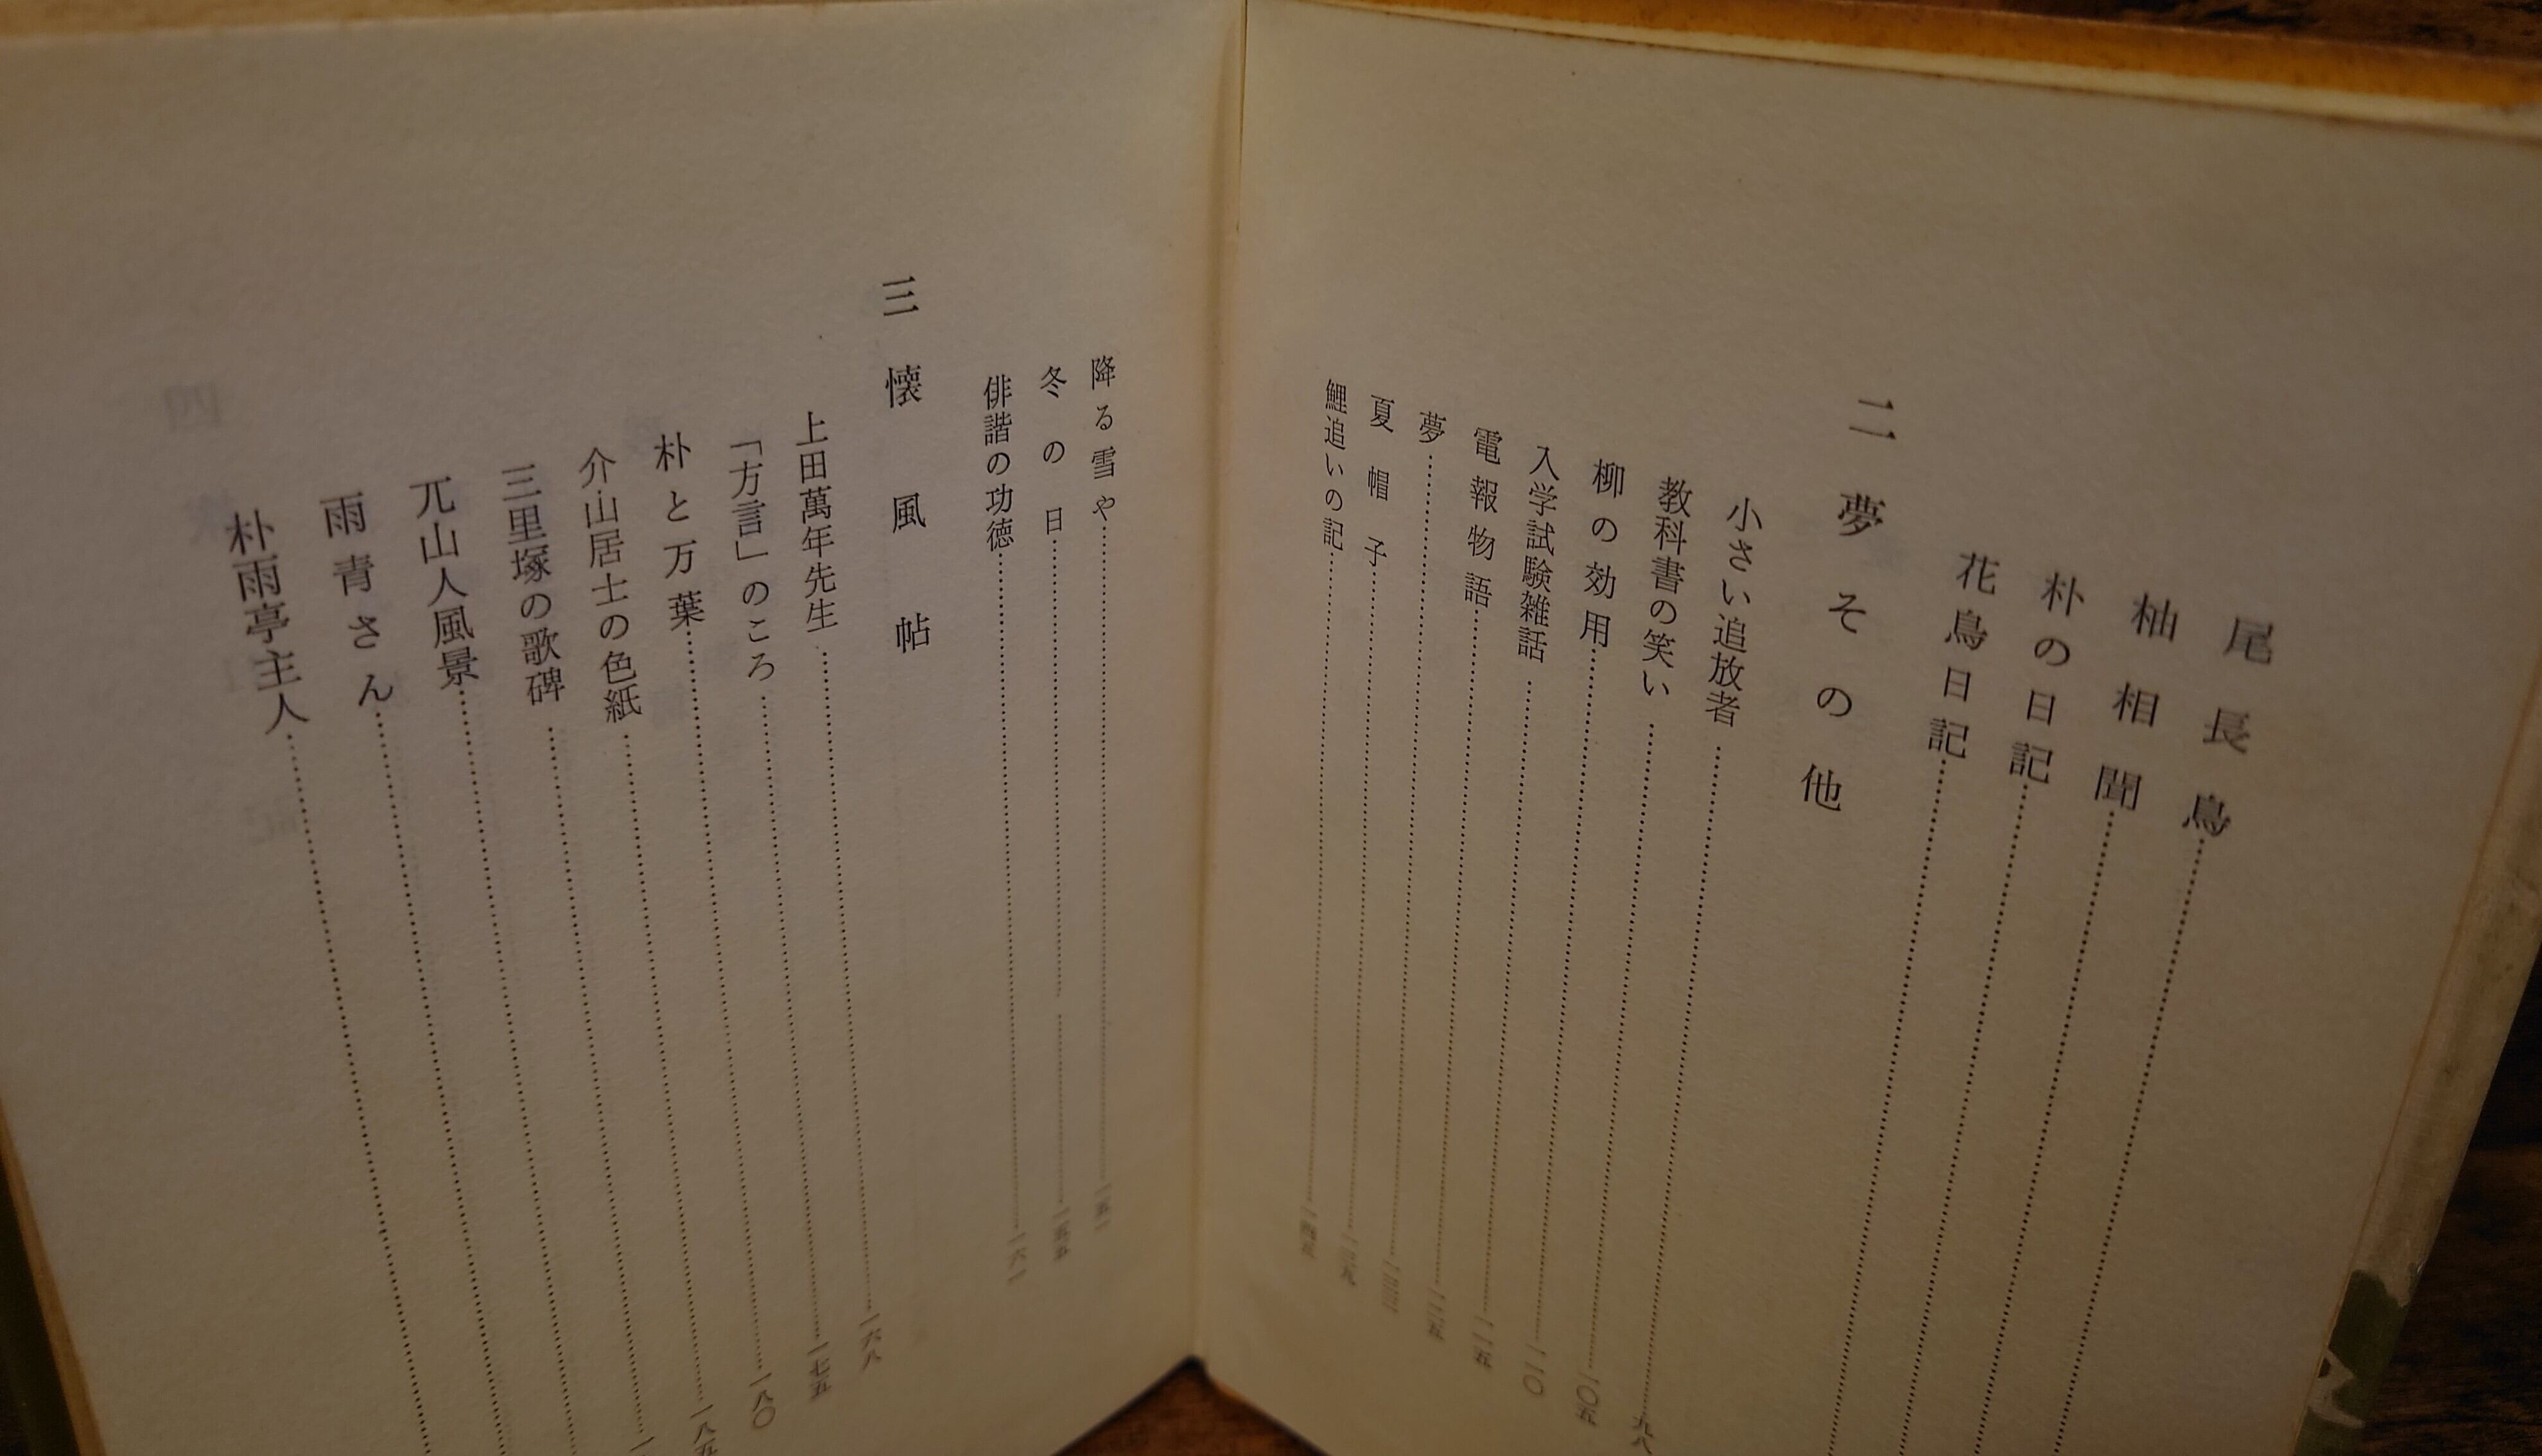 尾長鳥
柚相聞
朴の日記
花鳥日記
二 夢その他
小さい追放者 九八
教科書の笑い 一〇五
柳の効用 一一〇
入学試験雑話 一一五
電報物語 一二五
夢
夏帽子 一三九
鯉追いの記 一四五
降る雪や 一五一
冬の日 一五五
俳諧の功徳 一六一
三 懐風帖
上田萬年先生 一六八
「方言」のころ 一七五
朴と万葉 一八〇
介山居士の色紙 一八五
三里塚の歌碑
兀山人風景
雨青さん
朴雨亭主人